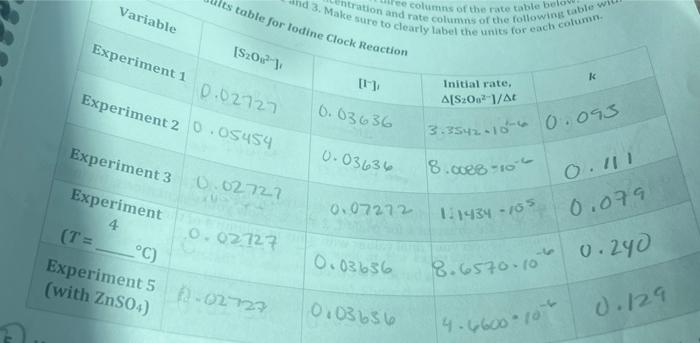 three columns of the rate table below
and 3. Make sure to clearly label the units for each column.
entration and rate columns of the following table
ults table for Iodine Clock Reaction
Variable [S₂O₈²⁻]ᵢ [I⁻]ᵢ Initial rate, Δ[S₂O₈²⁻]/Δt k
Experiment 1 0.02727 0.03636 3.3542·10⁻⁶ 0.093
Experiment 2 0.05454 0.03636 8.0088·10⁻⁶ 0.111
Experiment 3 0.02727 0.07272 1.1434·10⁵ 0.079
Experiment 4 (T = ____°C) 0.02727 0.03636 8.6570·10⁻⁶ 0.240
Experiment 5 (with ZnSO₄) 0.02727 0.03636 4.6600·10⁻⁶ 0.129